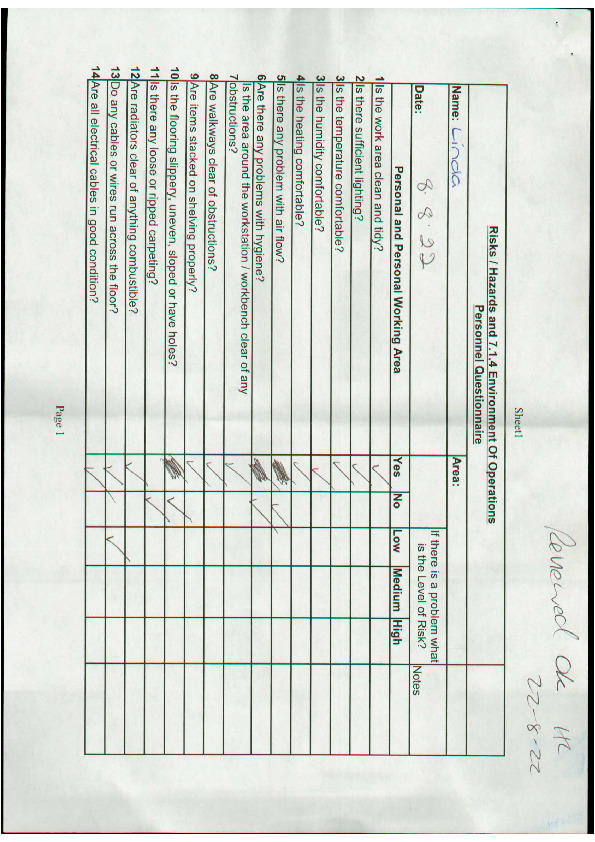 Reviewed Ok HL
22-8-22
Sheet1
Risks / Hazards and 7.1.4 Environment Of Operations
Personnel Questionnaire
Name: Linda Area:
Date: 8.8.22 If there is a problem what is the Level of Risk? Notes
Personal and Personal Working Area Yes No Low Medium High
1 Is the work area clean and tidy? ✓
2 Is there sufficient lighting? ✓
3 Is the temperature comfortable? ✓
3 Is the humidity comfortable? ✓
4 Is the heating comfortable? ✓
5 Is there any problem with air flow? ✓
6 Are there any problems with hygiene? ✓
Is the area around the workstation / workbench clear of any
7 obstructions? ✓
8 Are walkways clear of obstructions? ✓
9 Are items stacked on shelving properly? ✓
10 Is the flooring slippery, uneven, sloped or have holes? ✓
11 Is there any loose or ripped carpeting? ✓
12 Are radiators clear of anything combustible? ✓
13 Do any cables or wires run across the floor? ✓ ✓
14 Are all electrical cables in good condition? ✓
Page 1